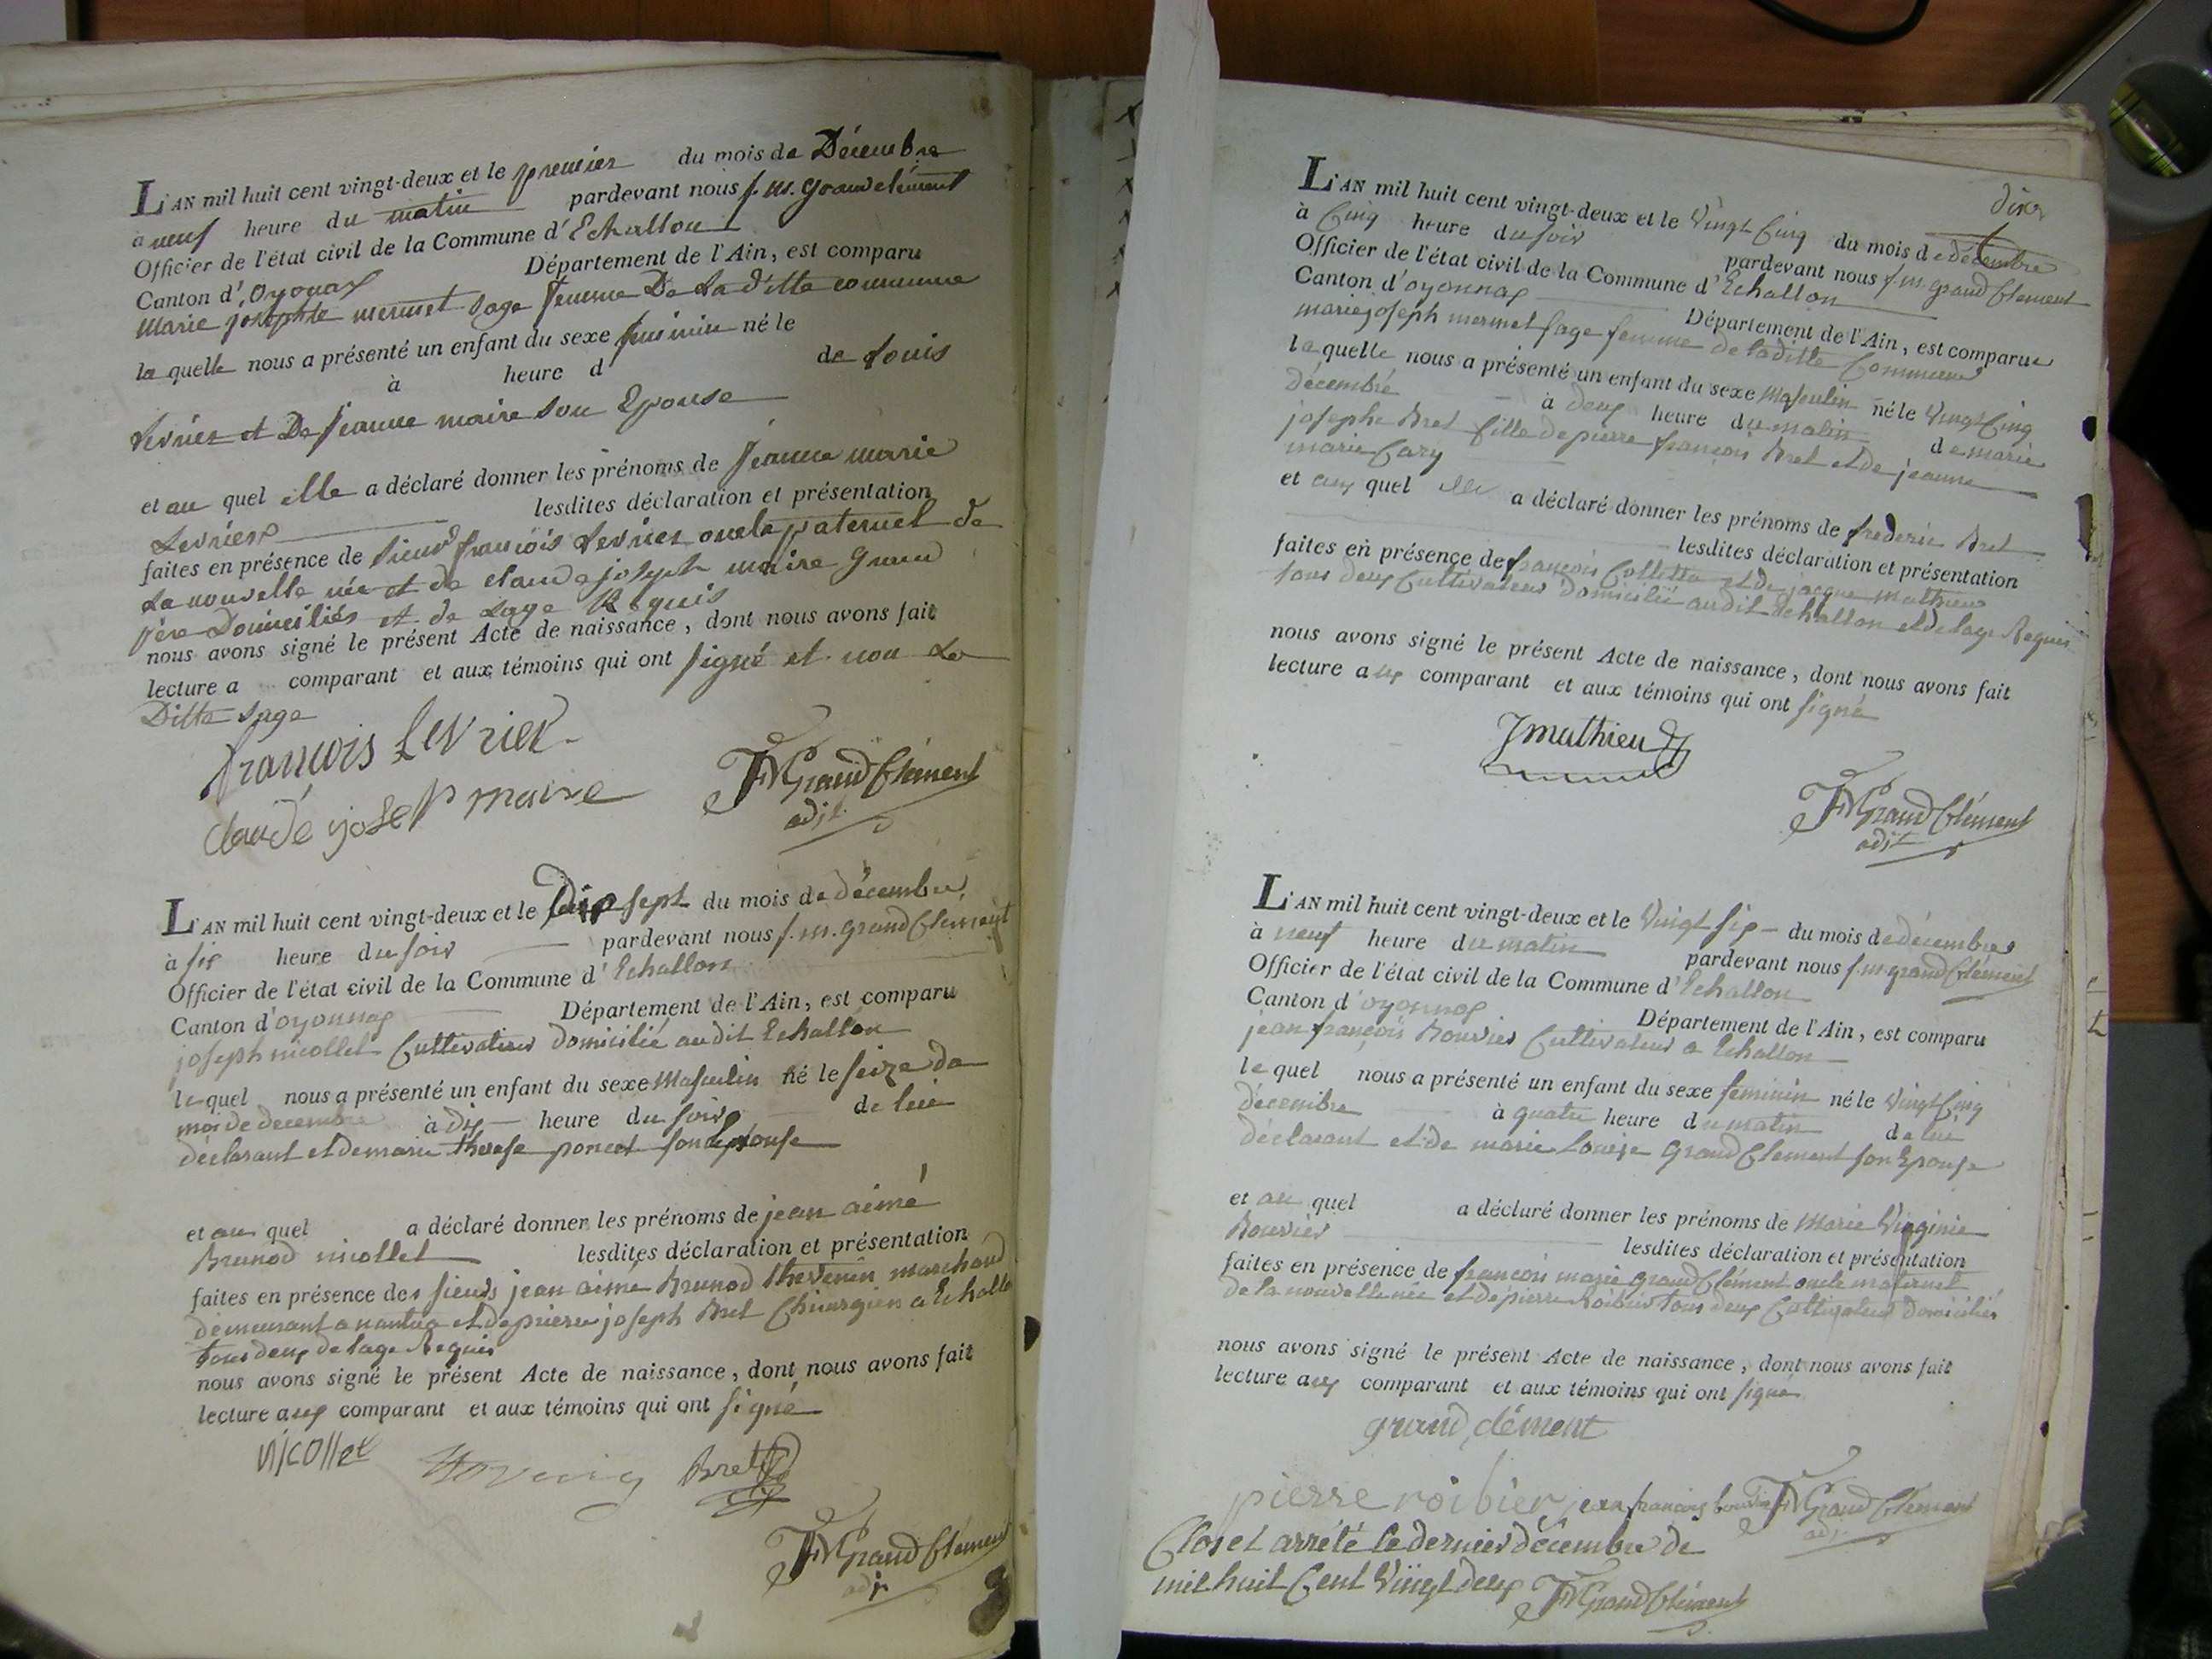 L'AN mil huit cent vingt-deux et le premier du mois de Décembre
à neuf heure du matin pardevant nous f. m. grandclément
Officier de l'état civil de la Commune d'Echallon
Canton d'Oyonax Département de l'Ain, est comparu
Marie josephte mermet Sage femme De La ditte commune
la quelle nous a présenté un enfant du sexe feminin né le
à heure d de Louis
Levrier et De jeanne maire son Epouse
et au quel elle a déclaré donner les prénoms de jeanne marie
Levrier lesdites déclaration et présentation
faites en présence de Sieur françois Levrier oncle paternel de
La nouvelle née et de claude joseph maire grand
père Domiciliés et de Lage Requis
nous avons signé le présent Acte de naissance, dont nous avons fait
lecture a comparant et aux témoins qui ont signé et non La
Ditte sage
françois Levrier
claude joseph maire
FMGrandClément
adjt
L'AN mil huit cent vingt-deux et le Dix sept du mois de décembre
à six heure du soir pardevant nous f. m. grandClément
Officier de l'état civil de la Commune d'Echallon
Canton d'oyonnax Département de l'Ain, est comparu
joseph nicollet Cultivateur domicilié audit Echallon
lequel nous a présenté un enfant du sexe Masculin né le seize de
mois de decembre à dix heure du soir de lui
déclarant et de marie therese poncet son épouse
et au quel a déclaré donner les prénoms de jean aimé
Brunod nicollet lesdites déclaration et présentation
faites en présence des sieurs jean aime Brunod thevenin marchand
demeurant a nantua et de pierre joseph Bret Chirurgien a Echallon
tous deux de lage Requis
nous avons signé le présent Acte de naissance, dont nous avons fait
lecture aux comparant et aux témoins qui ont signé
Nicollet Bret
FMGrandClément
adjt
dix
L'AN mil huit cent vingt-deux et le Vingt Cinq du mois de décembre
à Cinq heure du soir pardevant nous f. m. grand Clement
Officier de l'état civil de la Commune d'Echallon
Canton d'oyonnax Département de l'Ain, est comparue
marie joseph mermet sage femme de laditte Commune
laquelle nous a présenté un enfant du sexe Masculin né le Vingt Cinq
décembre à deux heure du matin de marie
josephe Bret fille de pierre françois Bret et de jeanne
marie Cary
et aux quel elle a déclaré donner les prénoms de frederic Bret
lesdites déclaration et présentation
faites en présence de françois Collettaz et de jacque Mathieu
tous deux Cultivateurs domicilié audit Echallon et de lage Requis
nous avons signé le présent Acte de naissance, dont nous avons fait
lecture aux comparant et aux témoins qui ont signé
Jmathieu
FMGrandClément
adjt
L'AN mil huit cent vingt-deux et le Vingt six du mois de décembre
à neuf heure du matin pardevant nous f. m. grandClément
Officier de l'état civil de la Commune d'Echallon
Canton d'oyonnax Département de l'Ain, est comparu
jean françois Bouvier Cultivateur a Echallon
lequel nous a présenté un enfant du sexe féminin né le Vingt Cinq
décembre à quatre heure du matin de lui
déclarant et de marie Louise grandClement son Epouse
et au quel a déclaré donner les prénoms de Marie Virginie
Bouvier lesdites déclaration et présentation
faites en présence de françois marie grandClément oncle maternel
de la nouvelle née et de pierre Roibier tous deux Cultivateur domiciliés
nous avons signé le présent Acte de naissance, dont nous avons fait
lecture aux comparant et aux témoins qui ont signé
grand clément
pierre roibier jean françois bouvier FMGrandClément
adjt
Clos et arrété le dernier décembre de
mil huit Cent Vingt deux FMGrandClément